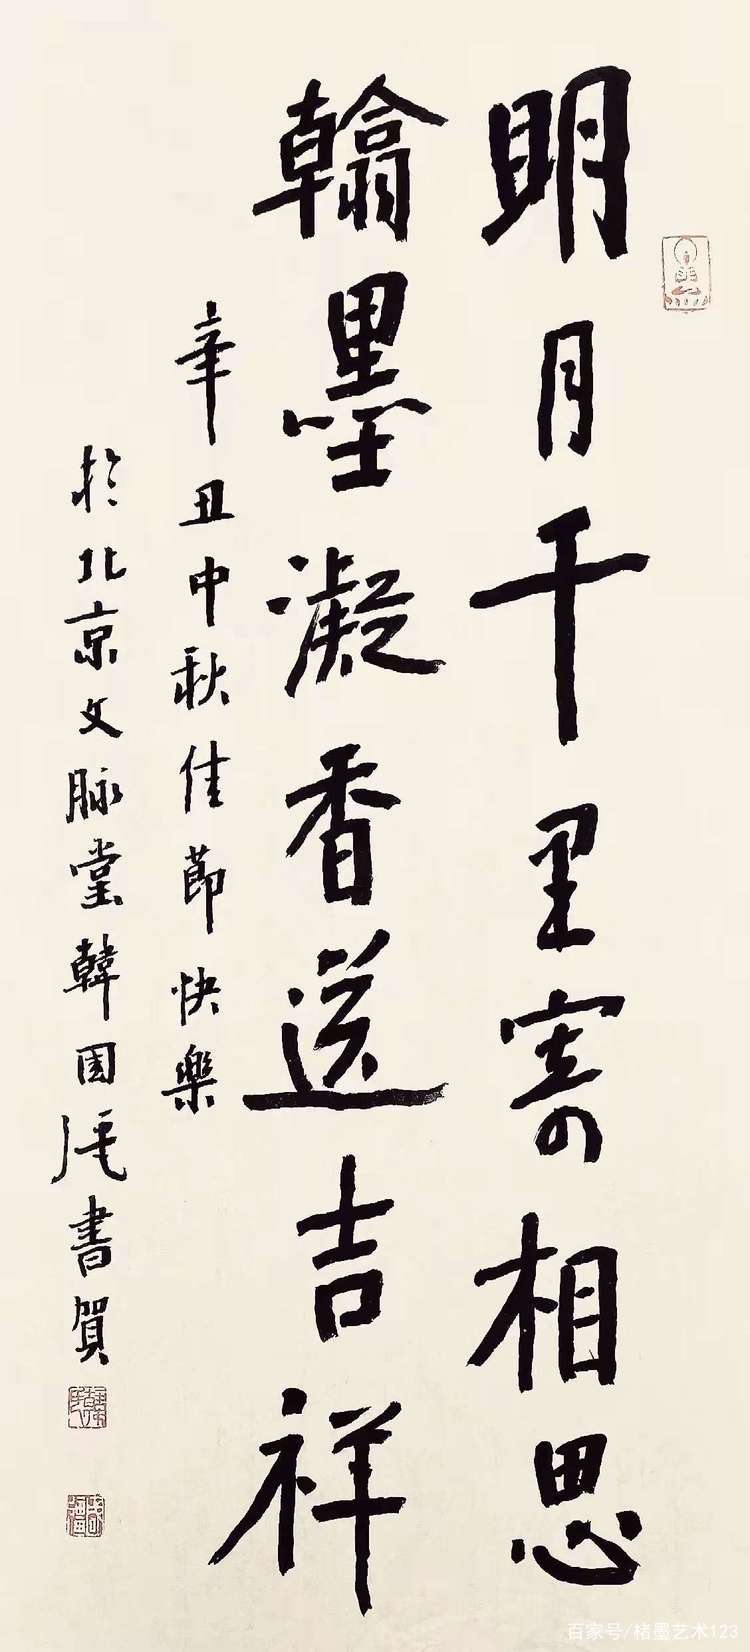 明月千里寄相思
翰墨凝香送吉祥
辛丑中秋佳節快樂
於北京文脉堂韓國彊書賀
百家号/楮墨艺术123